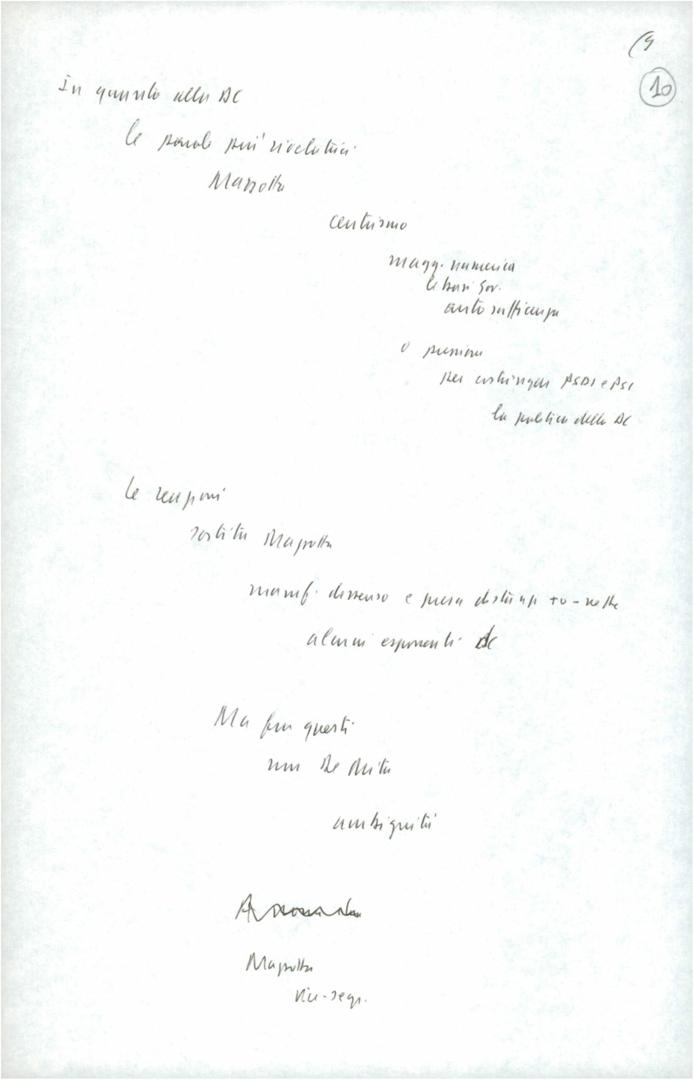 10
In quanto alla DC
le parole più rivelatrici
Mazzotta
centrismo
magg. numerica
le basi Gov.
autosufficenza
o pressione
per costringere PSDI e PSI
la politica della DC
le reazioni
sortita Mazzotta
manif. dissenso e presa distanza +o-nette
alcuni esponenti DC
Ma fra questi
un De Mita
ambiguità
Mazzotta
vice-segr.